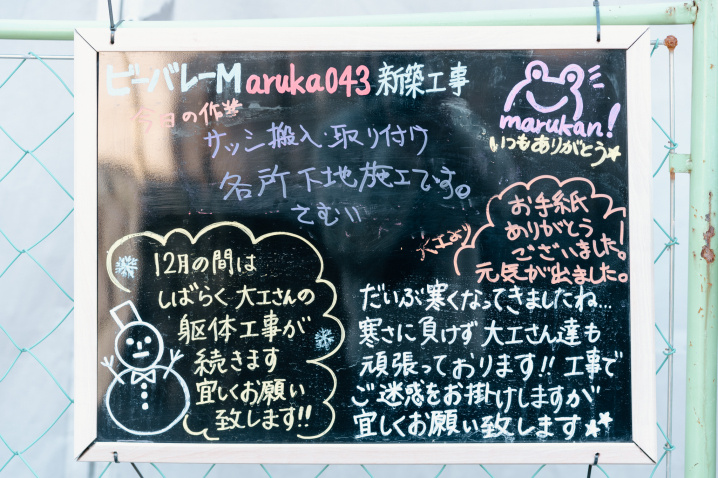 ビーバレーMaruka043 新築工事
今日の作業
サッシ搬入.取り付け
各所下地施工です。
さむい
marukan!
いつもありがとう☆
大工より
お手紙
ありがとう
ございました!
元気が出ました。
12月の間は
しばらく大工さんの
躯体工事が
続きます
宜しくお願い
致します!!
だいぶ寒くなってきましたね...
寒さに負けず大工さん達も
頑張っております!! 工事で
ご迷惑をお掛けしますが
宜しくお願い致します